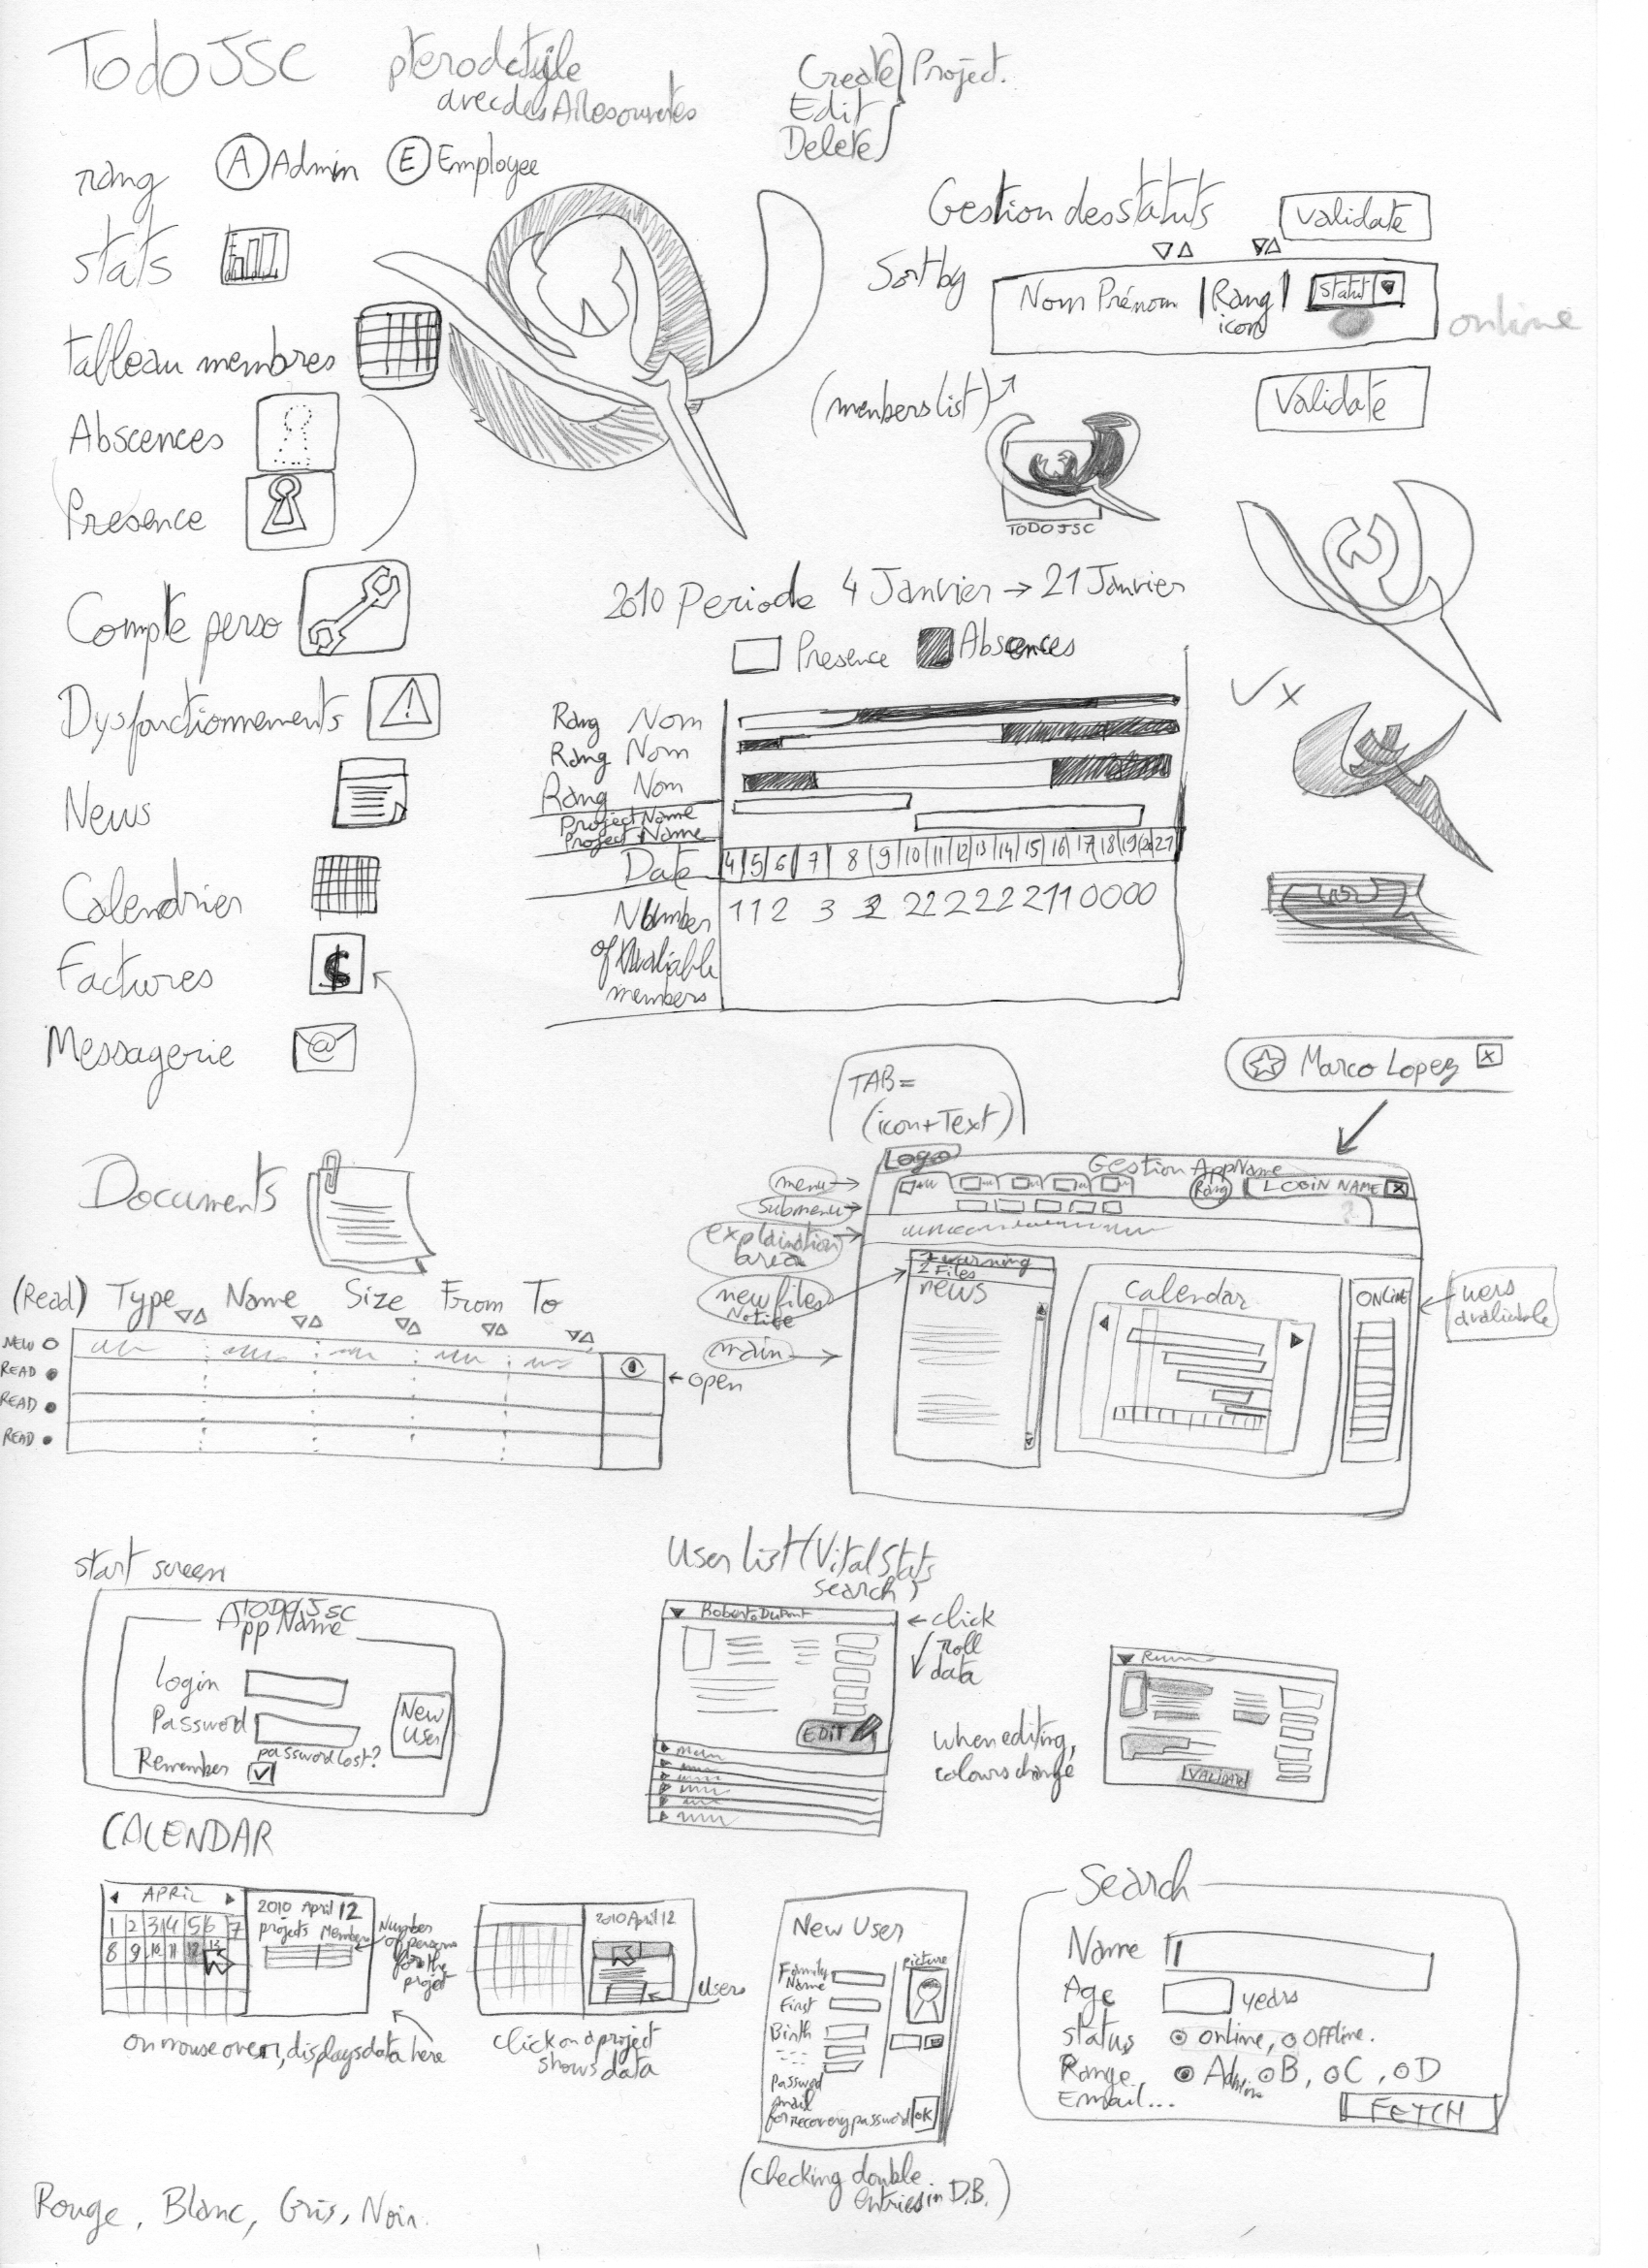 TodoJSC
pterodctyle
avec des Ailes ouvertes
Create
Edit
Delete
Project.
rang
A Admin
E Employee
stats
tableau membres
Abscences
Presence
Compte perso
Dysfonctionnements
News
Calendrier
Factures
$
Messagerie
@
Documents
Gestion des statuts
validate
Sort by
Nom Prénom
Rang
icon
statut
online
(members list)
Validate
TODO JSC
2010 Periode 4 Janvier → 21 Janvier
Presence
Abscences
Rang Nom
Rang Nom
Rang Nom
Project Name
Project Name
Date
4 5 6 7 8 9 10 11 12 13 14 15 16 17 18 19 20 21
Number
of Avaliable
members
Marco Lopez X
TAB =
(icon+Text)
Logo
Gestion AppName
menu
Rang
LOGIN NAME X
submenu
explaination
area
new files
Notice
1 warning
2 Files
news
Calendar
ONLINE
users
avaliable
main
(Read) Type Name Size From To
NEW
READ
READ
READ
open
start screen
TODO JSC
App Name
login
Password
password lost?
Remember
New
User
User List (Vital Stats
search)
Roberto Dupont
click
roll
data
EDIT
when editing,
colours change
VALIDATE
CALENDAR
APRIL
1 2 3 4 5 6 7
8 9 10 11 12 13
2010 April 12
projects Members
Number
of persons
for the
projet
on mouse over, displays data here
2010 April 12
Users
click on a project
shows data
New User
Family
Name
First
Birth
picture
Password
email
for recovery password
OK
(checking double
entries in D.B.)
Search
Name
Age years
status online, offline.
Range Admin B, C, D
Email...
FETCH
Rouge, Blanc, Gris, Noir.